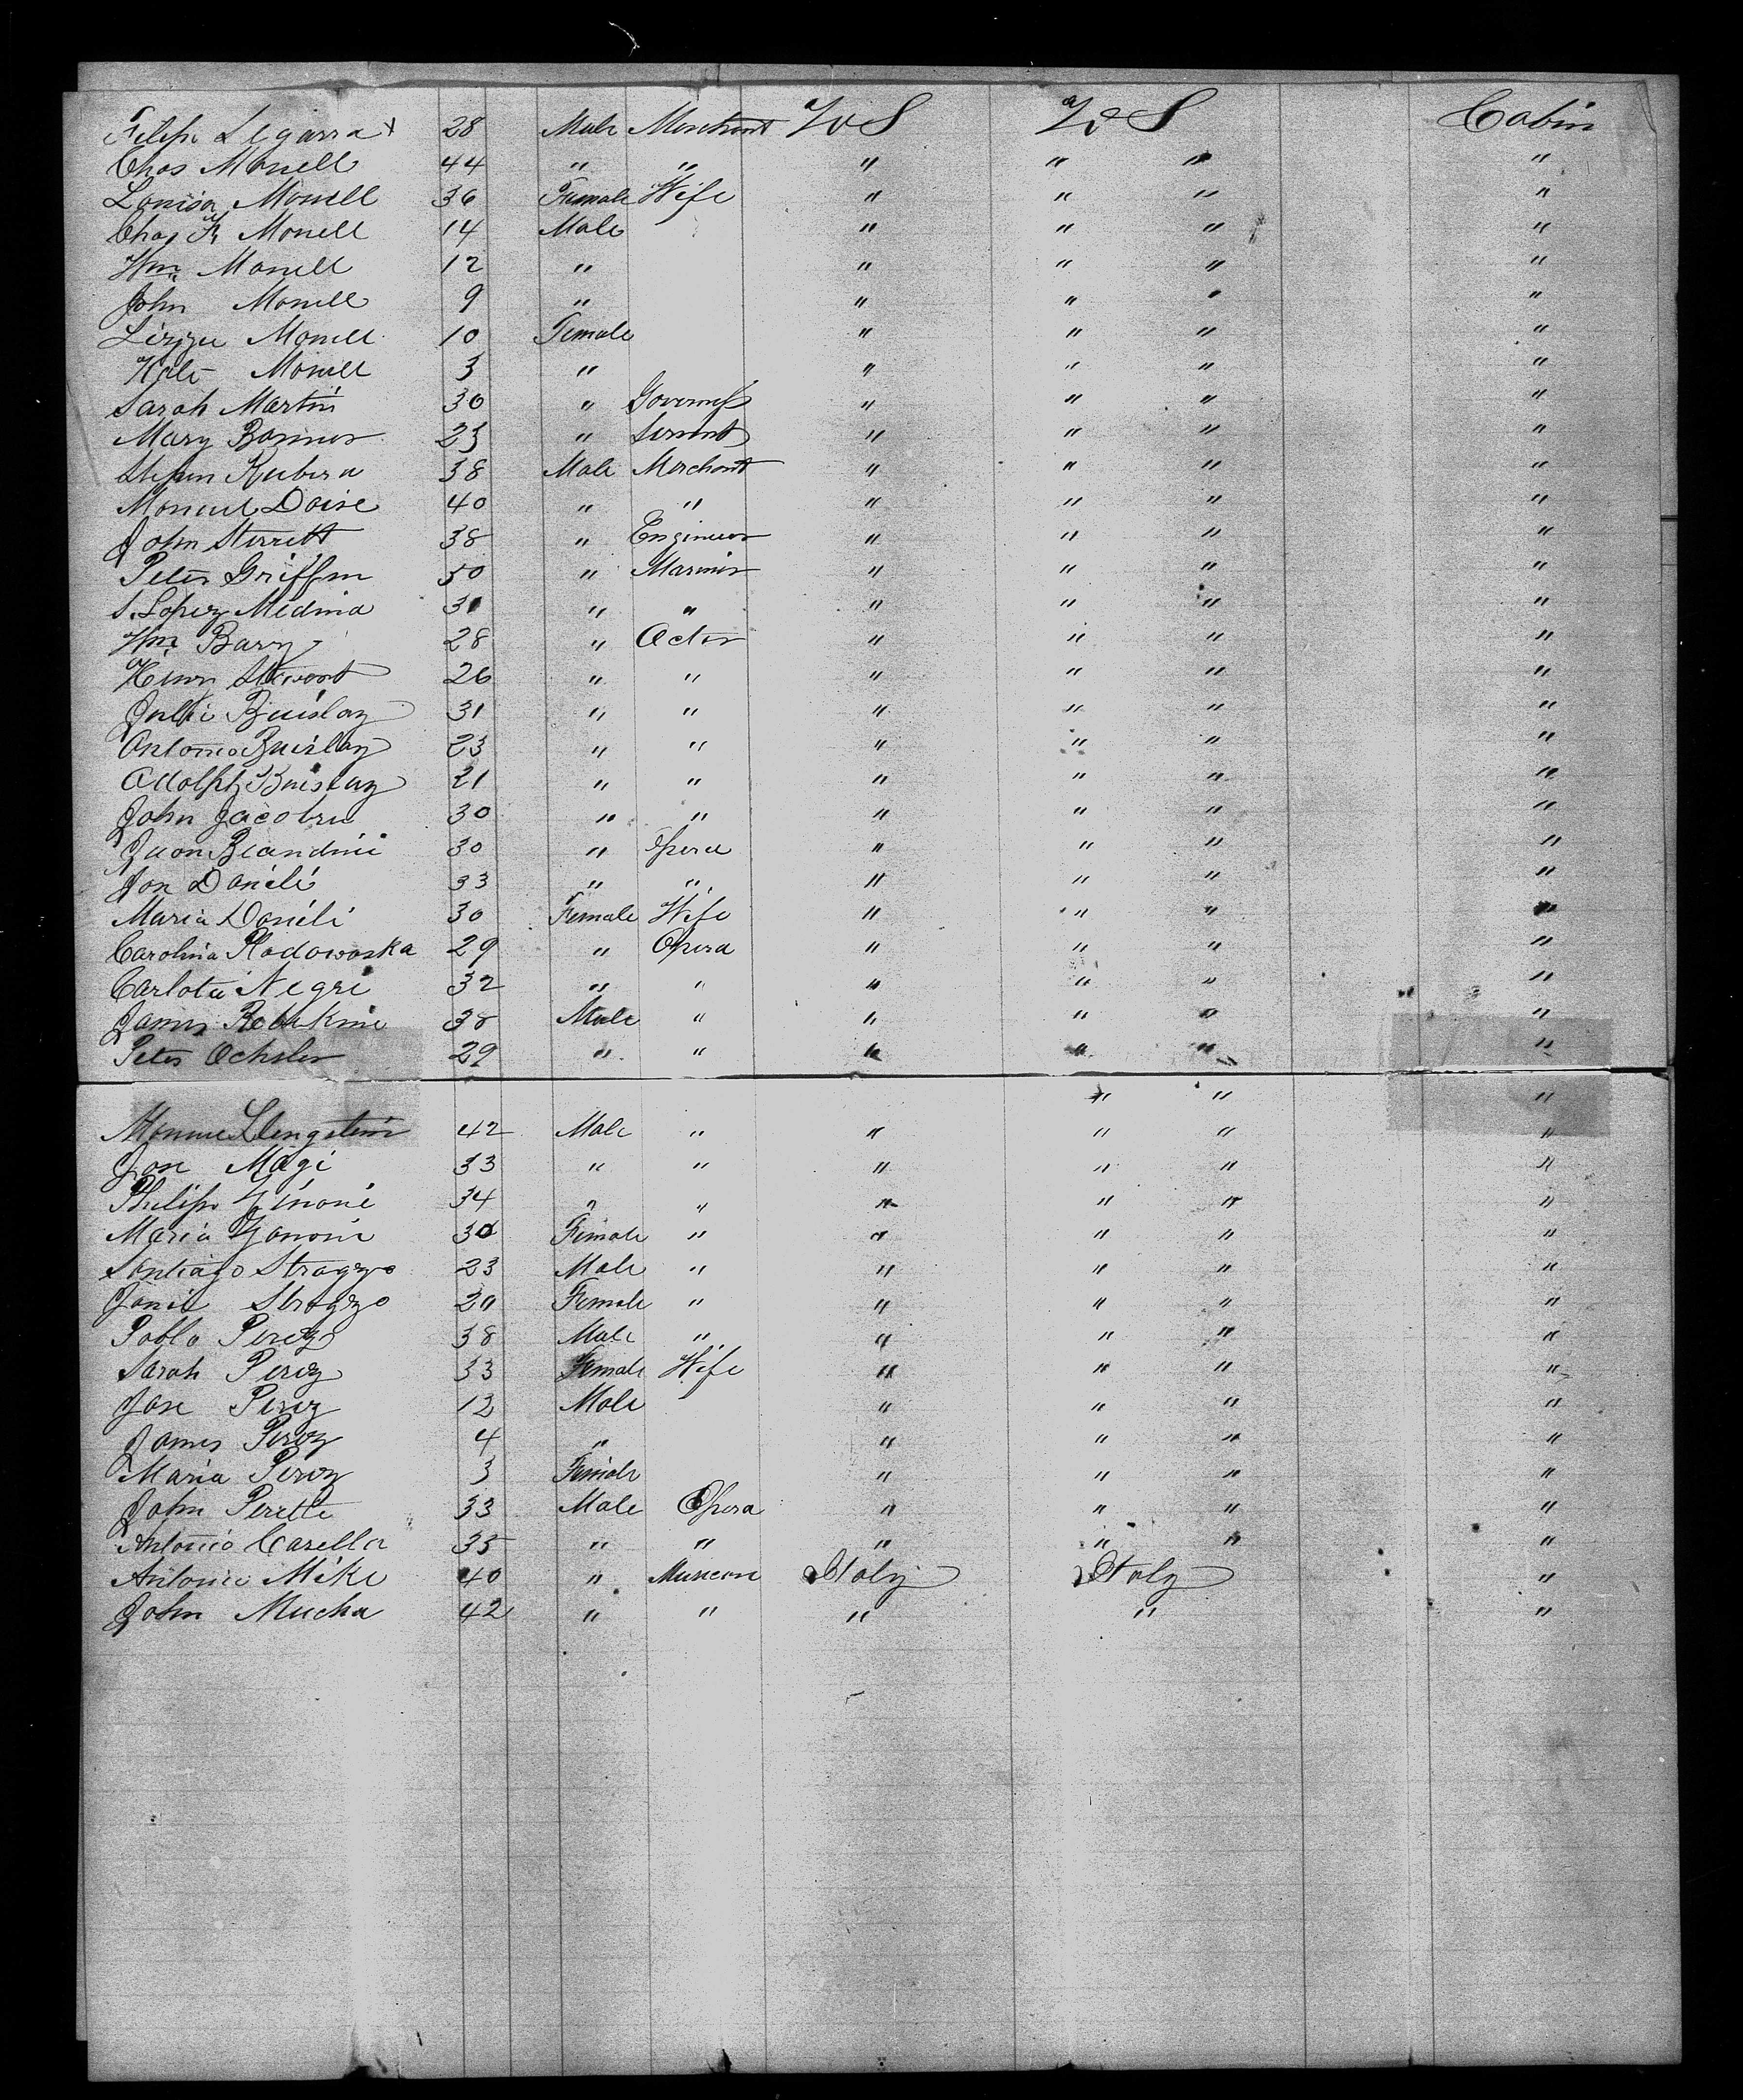 Felipe Legarra 28 Male Merchant U S U S Cabin
Chas Monell 44 " " " " " "
Louisa Monell 36 Female Wife " " " "
Chas Monell 14 Male " " " "
Wm Monell 12 " " " " "
John Monell 9 " " " " "
Lizzie Monell 10 Female " " " "
Kate Monell 3 " " " " "
Sarah Martin 30 " Governess " " " "
Mary 23 " Servant " " " "
38 Male Merchant " " " "
40 " " " " " "
John Sterrett 38 " Engineer " " " "
Peter Griffin 50 " Mariner " " " "
S. Lopez Medina 31 " " " " " "
Wm Barry 28 " Actor " " " "
Henry Stewart 26 " " " " " "
Buislay 31 " " " " " "
Antonio Buislay 23 " " " " " "
Adolph Buislay 21 " " " " " "
John 30 " " " " " "
Juan 30 " Opera " " " "
Danili 33 " " " " " "
Maria Danili 30 Female Wife " " " "
Carolina 29 " Opera " " " "
Carlota Negri 32 " " " " " "
James 38 Male " " " " "
Peter Ochsler 29 " " " " " "
" " "
42 Male " " " " "
Jose Magi 33 " " " " " "
Philip 34 " " " " " "
Maria 30 Female " " " " "
Santiago Stragzo 23 Male " " " " "
Stragzo Female " " " " "
Pablo Perez 38 Male " " " " "
Sarah Perez 33 Female Wife " " " "
Jose Perez 12 Male " " " "
James Perez 4 " " " " "
Maria Perez 3 Female " " " "
John Perette 33 Male Opera " " " "
Antonio Casella 35 " " " " " "
Antonio Mike 40 " Italy Italy "
John Mucha 42 " " " " "